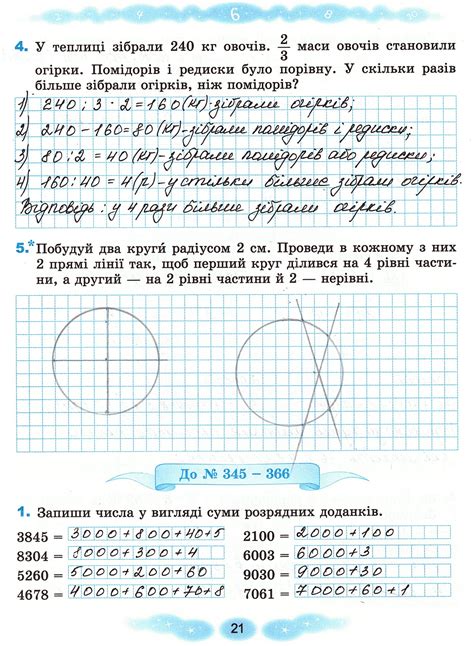 6
4. У теплиці зібрали 240 кг овочів. 2/3 маси овочів становили
огірки. Помідорів і редиски було порівну. У скільки разів
більше зібрали огірків, ніж помідорів?
1) 240 : 3 · 2 = 160 (кг) - зібрали огірків;
2) 240 - 160 = 80 (кг) - зібрали помідорів і редиски;
3) 80 : 2 = 40 (кг) - зібрали помідорів або редиски;
4) 160 : 40 = 4 (р) - у стільки більше зібрали огірків.
Відповідь : у 4 рази більше зібрали огірків.
5.* Побудуй два круги́ радіусом 2 см. Проведи в кожному з них
2 прямі лінії так, щоб перший круг ділився на 4 рівні части-
ни, а другий — на 2 рівні частини й 2 — нерівні.
До № 345 – 366
1. Запиши числа у вигляді суми розрядних доданків.
3845 = 3000+800+40+5 2100 = 2000+100
8304 = 8000+300+4 6003 = 6000+3
5260 = 5000+200+60 9030 = 9000+30
4678 = 4000+600+70+8 7061 = 7000+60+1
21